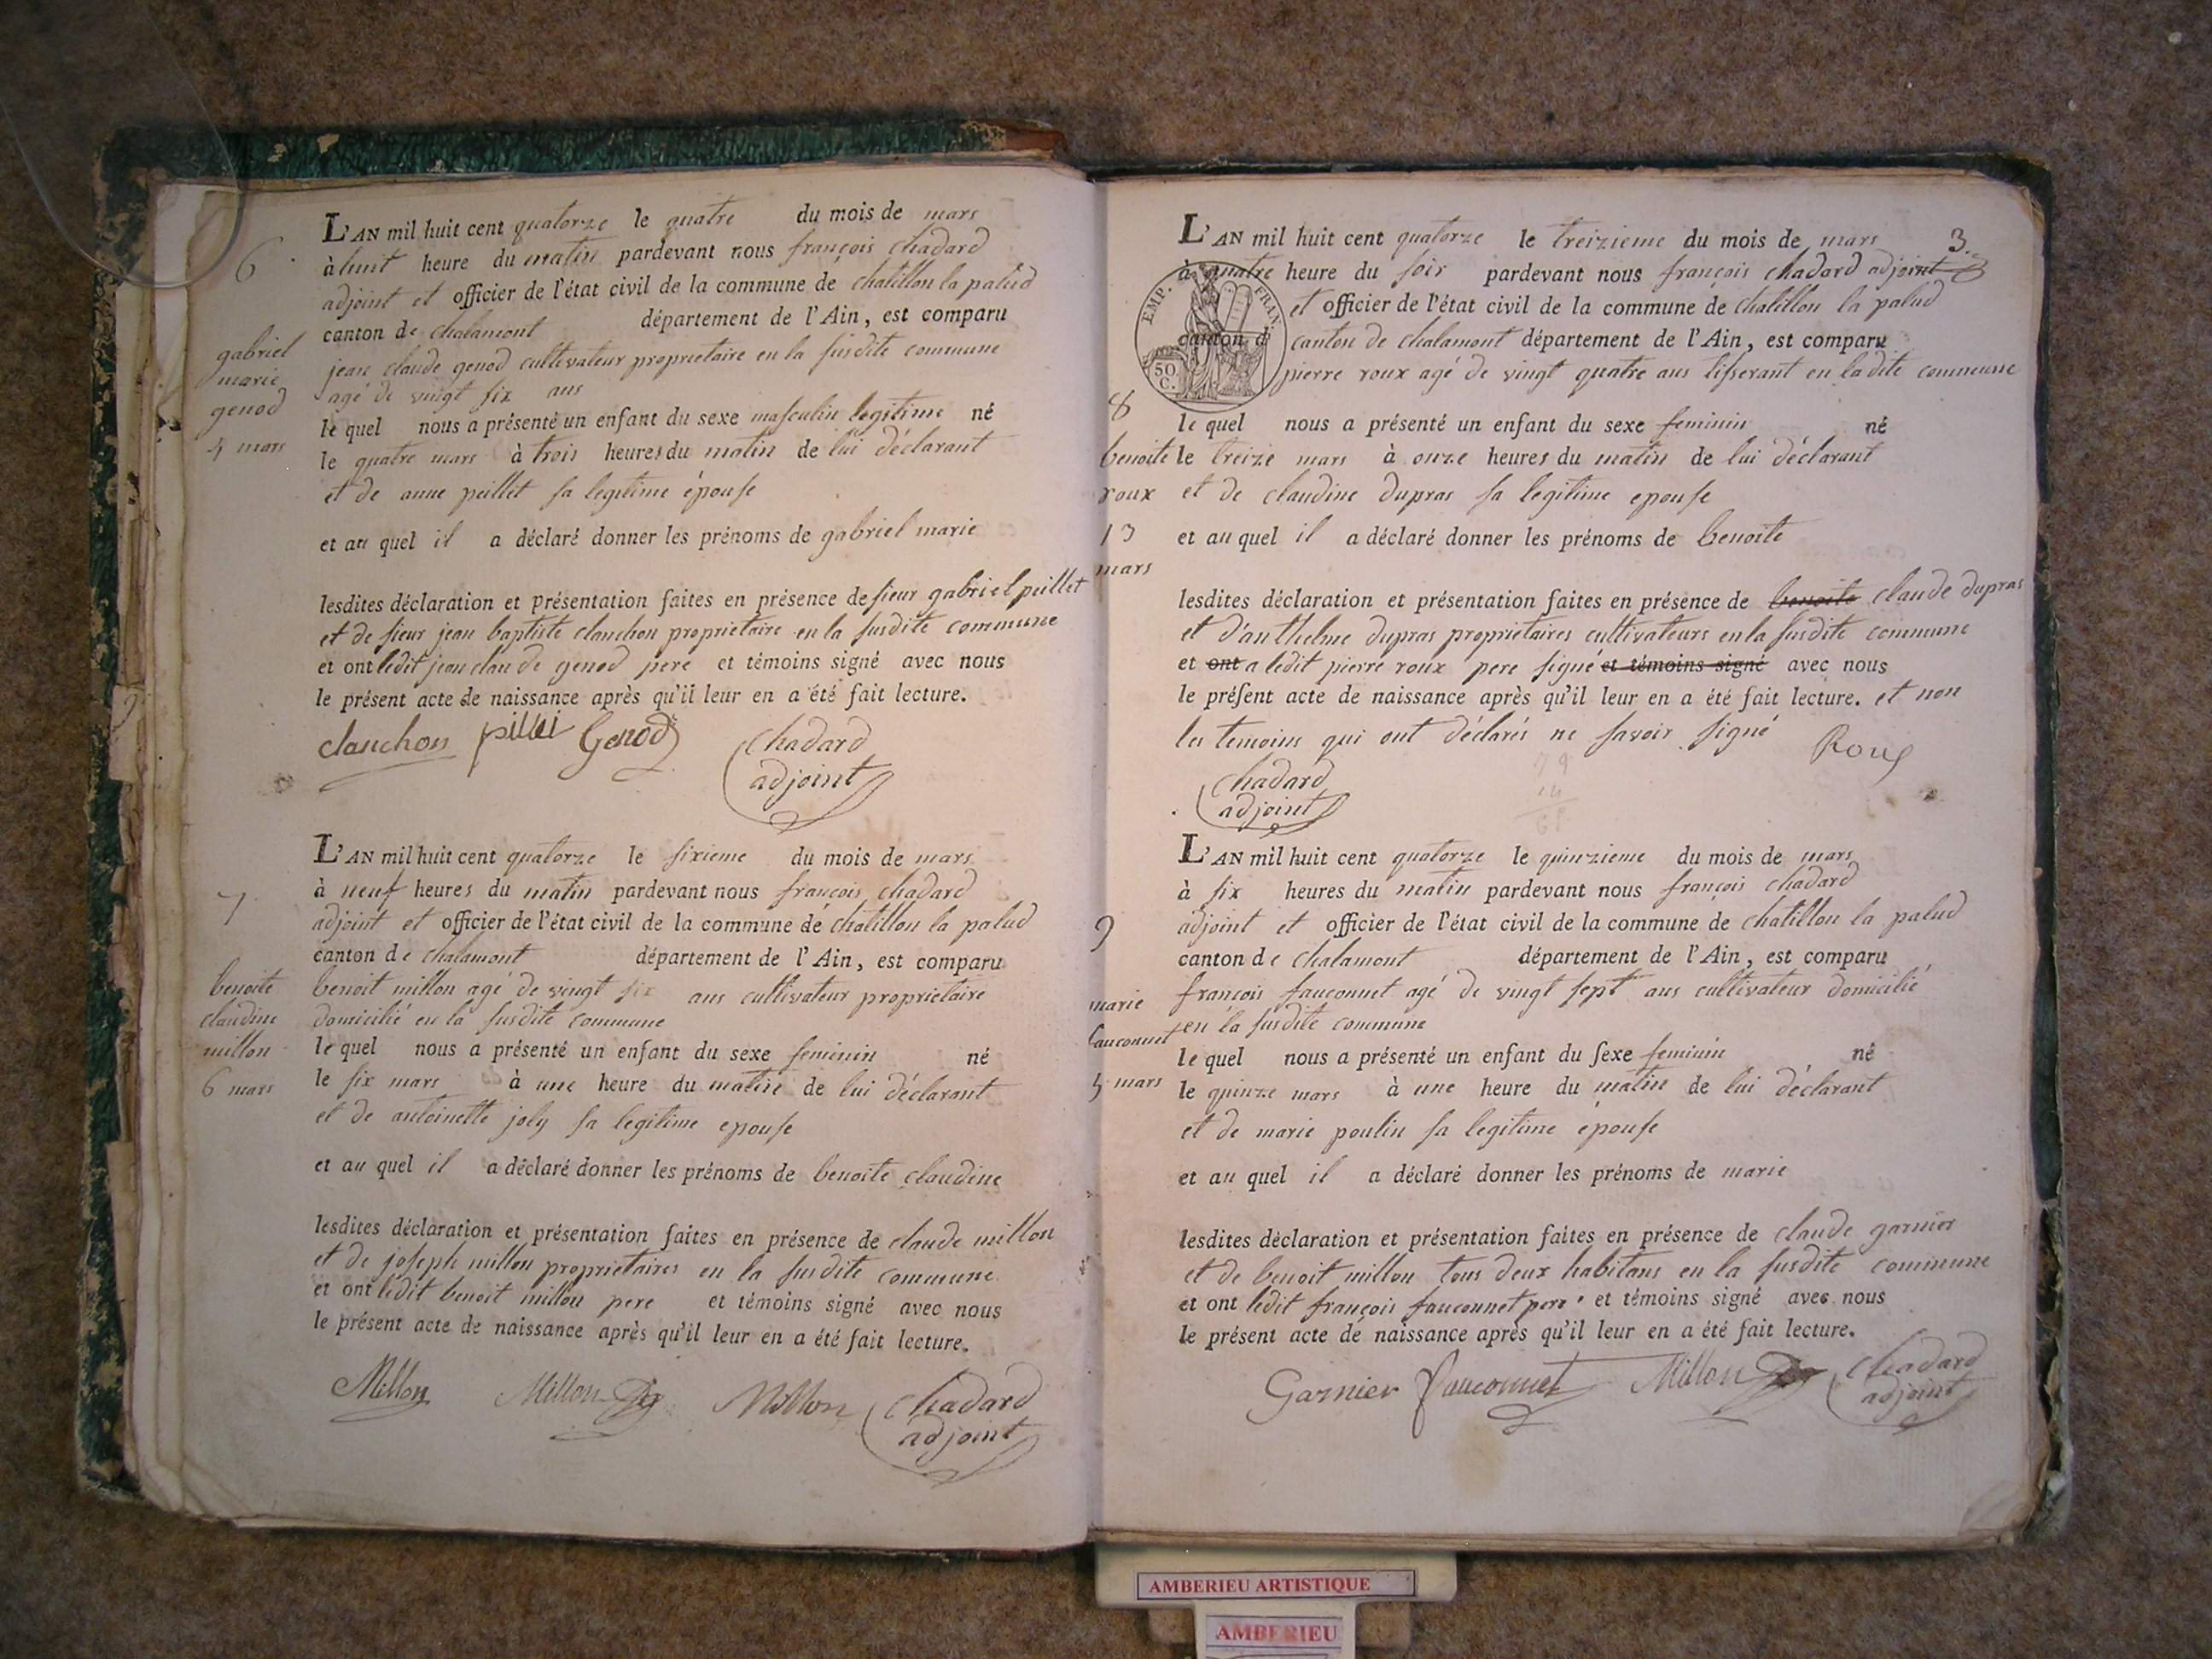 6
gabriel
marie
genod
4 mars
L'AN mil huit cent quatorze le quatre du mois de mars
à huit heure du matin pardevant nous françois chadard
adjoint et officier de l'état civil de la commune de chatillon la palud
canton de chalamont département de l'Ain, est comparu
jean claude genod cultivateur proprietaire en la susdite commune
agé de vingt six ans
le quel nous a présenté un enfant du sexe masculin legitime né
le quatre mars à trois heures du matin de lui déclarant
et de anne peillet sa legitime épouse
et au quel il a déclaré donner les prénoms de gabriel marie
lesdites déclaration et présentation faites en présence de sieur gabriel peillet
et de sieur jean baptiste clanchon proprietaire en la susdite commune
et ont ledit jean claude genod pere et témoins signé avec nous
le présent acte de naissance après qu'il leur en a été fait lecture.
clanchon Genod chadard
adjoint
7
benoite
claudine
millon
6 mars
L'AN mil huit cent quatorze le sixieme du mois de mars
à neuf heures du matin pardevant nous françois chadard
adjoint et officier de l'état civil de la commune de chatillon la palud
canton de chalamont département de l'Ain, est comparu
benoit millon agé de vingt six ans cultivateur proprietaire
domicilié en la susdite commune
le quel nous a présenté un enfant du sexe feminin né
le six mars à une heure du matin de lui déclarant
et de antoinette joly sa legitime epouse
et au quel il a déclaré donner les prénoms de benoite claudine
lesdites déclaration et présentation faites en présence de claude millon
et de joseph millon proprietaires en la susdite commune
et ont ledit benoit millon pere et témoins signé avec nous
le présent acte de naissance après qu'il leur en a été fait lecture.
Millon Millon Millon chadard
adjoint
3.
8
benoite
roux
13
mars
EMP. FRAN.
50
C.
L'AN mil huit cent quatorze le treizieme du mois de mars
à quatre heure du soir pardevant nous françois chadard adjoint
et officier de l'état civil de la commune de chatillon la palud
canton d canton de chalamont département de l'Ain, est comparu
pierre roux agé de vingt quatre ans tisserant en la dite commune
le quel nous a présenté un enfant du sexe feminin né
le treize mars à onze heures du matin de lui déclarant
et de claudine dupras sa legitime epouse
et au quel il a déclaré donner les prénoms de benoite
lesdites déclaration et présentation faites en présence de benoite claude dupras
et d'anthelme dupras proprietaires cultivateurs en la susdite commune
et ont a ledit pierre roux pere signé et témoins signé avec nous
le présent acte de naissance après qu'il leur en a été fait lecture. et non
les temoins qui ont déclarés ne savoir signé Roux
chadard
adjoint
9
marie
fauconnet
mars
L'AN mil huit cent quatorze le quinzieme du mois de mars
à six heures du matin pardevant nous françois chadard
adjoint et officier de l'état civil de la commune de chatillon la palud
canton de chalamont département de l'Ain, est comparu
françois fauconnet agé de vingt sept ans cultivateur domicilié
en la susdite commune
le quel nous a présenté un enfant du sexe feminin né
le quinze mars à une heure du matin de lui déclarant
et de marie poulin sa legitime épouse
et au quel il a déclaré donner les prénoms de marie
lesdites déclaration et présentation faites en présence de claude garnier
et de benoit millon tous deux habitans en la susdite commune
et ont ledit françois fauconnet pere et témoins signé avec nous
le présent acte de naissance après qu'il leur en a été fait lecture.
Garnier fauconnet Millon chadard
adjoint
AMBERIEU ARTISTIQUE
AMBERIEU